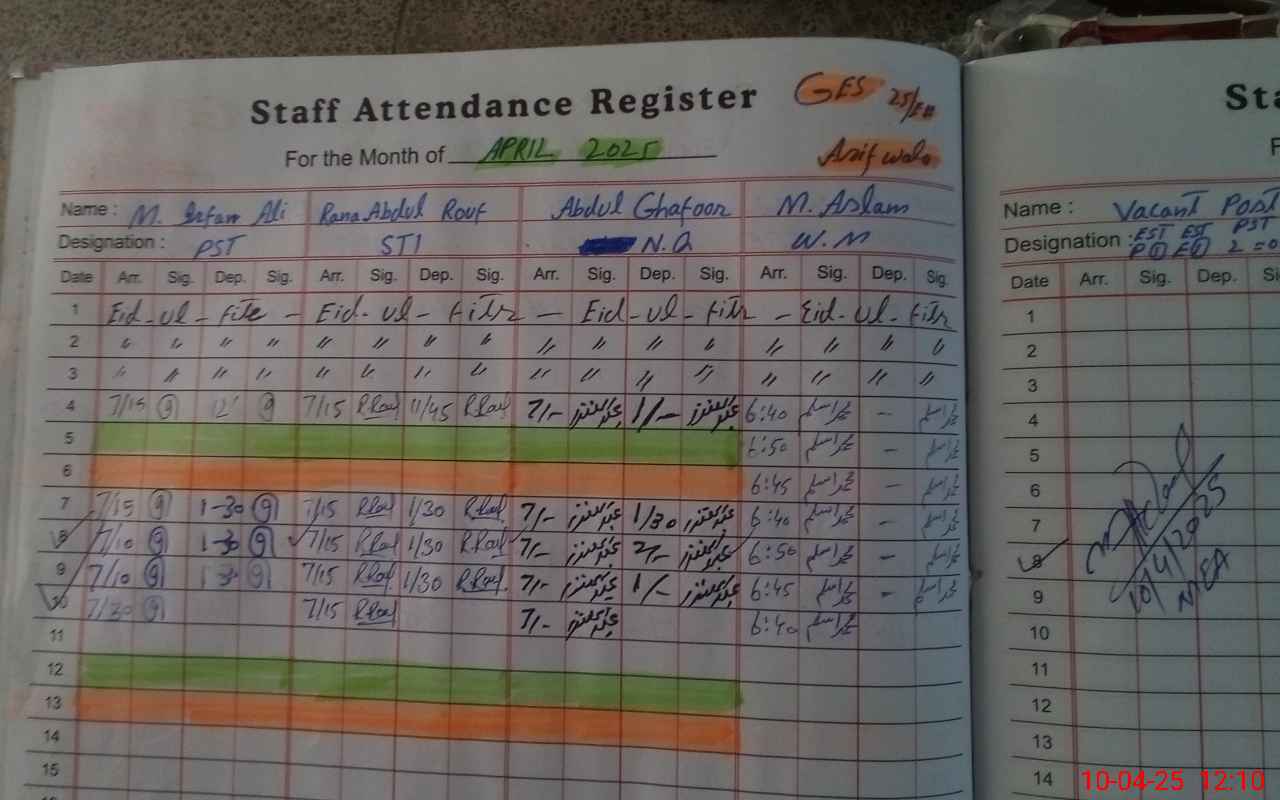 Staff Attendance Register GES 25/EB
For the Month of APRIL 2025 Arif wala
Name : M. Irfan Ali Rana Abdul Rouf Abdul Ghafoor M. Aslam
Designation : PST ST1 N.Q W.M
Date Arr. Sig. Dep. Sig. Arr. Sig. Dep. Sig. Arr. Sig. Dep. Sig. Arr. Sig. Dep. Sig.
1 Eid-ul-fitr - Eid-ul-fitr - Eid-ul-fitr - Eid-ul-fitr
2 " " " " " " " " " " " " " " " "
3 " " " " " " " " " " " " " " " "
4 7/15 12 7/15 R.Rauf 11/45 R.Rauf 7/- 1/- 6:40 محمد اسلم - محمد اسلم
5 6:50 محمد اسلم - محمد اسلم
6 6:45 محمد اسلم - محمد اسلم
7 7/15 1-30 7/15 R.Rauf 1/30 R.Rauf 7/- 1/30 6:40 محمد اسلم - محمد اسلم
8 7/10 1-30 7/15 R.Rauf 1/30 R.Rauf 7/- 2/- 6:50 محمد اسلم - محمد اسلم
9 7/10 1-30 7/15 R.Rauf 1/30 R.Rauf 7/- 1/- 6:45 محمد اسلم - محمد اسلم
10 7/30 7/15 R.Rauf 7/- 6:40 محمد اسلم
11
12
13
14
15
Sta
F
Name : Vacant Post
Designation : EST EST PST
Date Arr. Sig. Dep. Si
1
2
3
4
5
6
7
8
9
10
11
12
13
14
10/4/2025
MEA
10-04-25 12:10